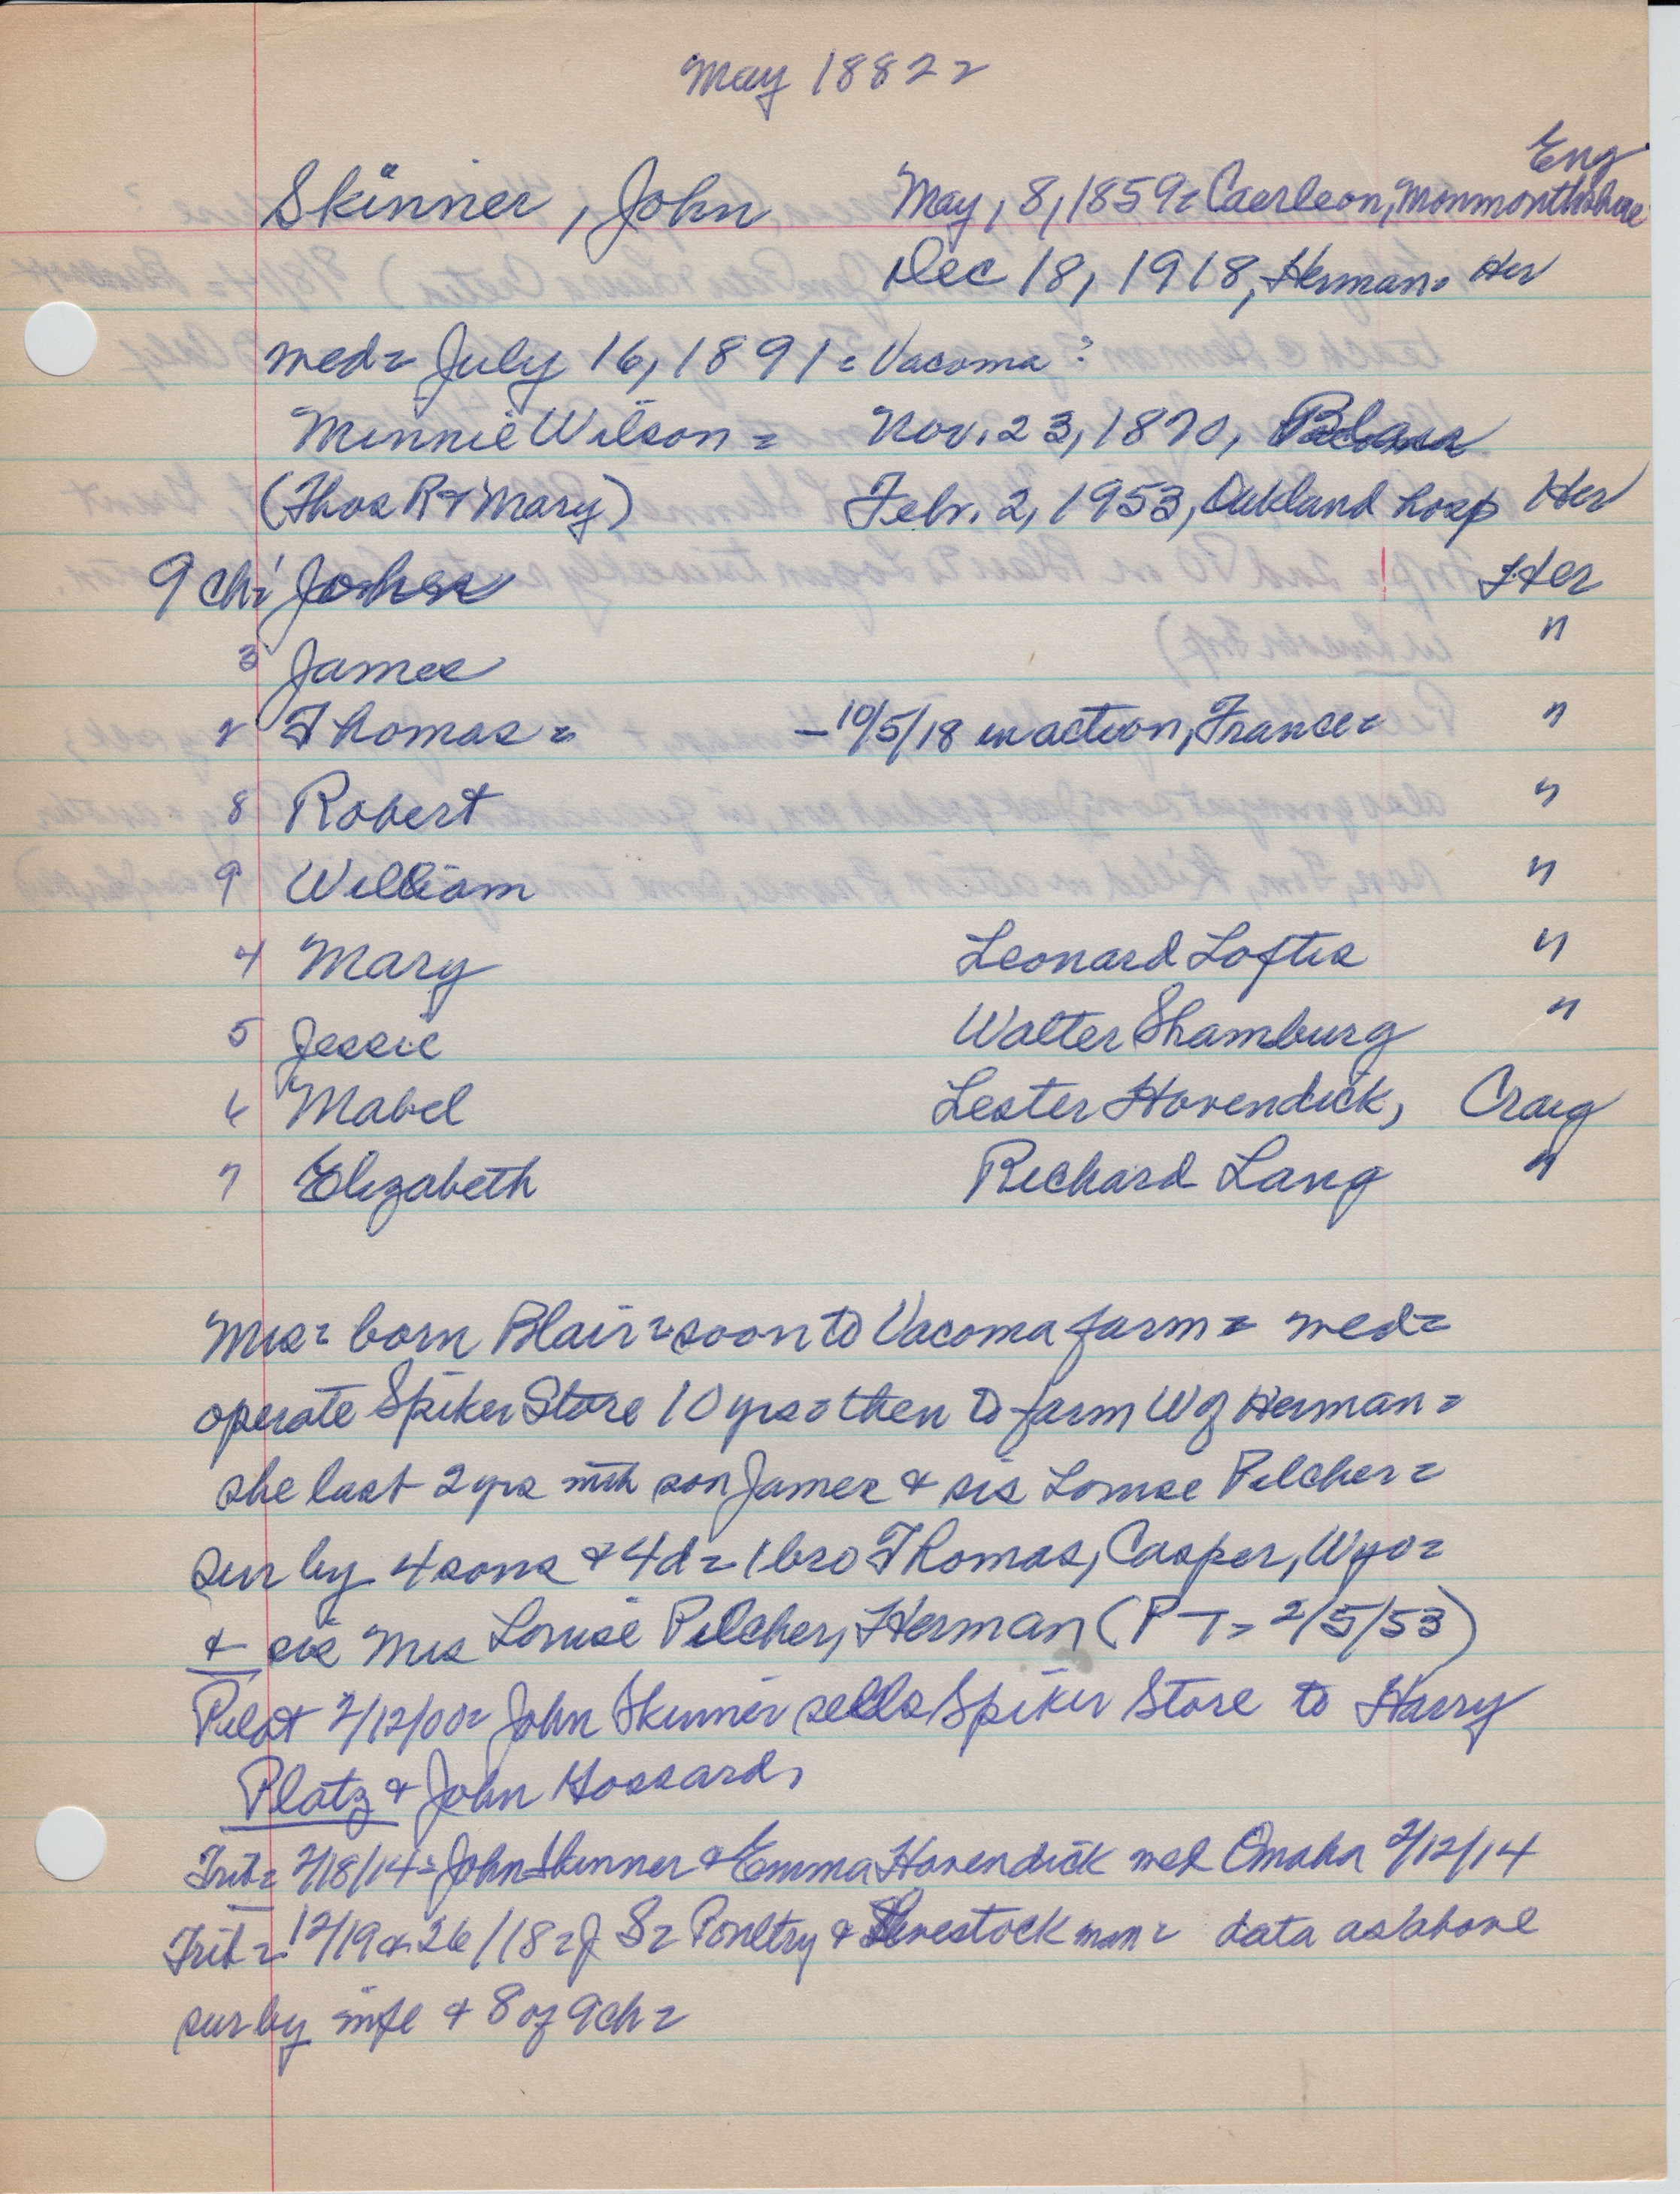 May 1882=
Eng
Skinner, John May, 8, 1859= Caerleon, Monmonthshire
Dec 18, 1918, Herman= Her
med= July 16, 1891= Vacoma?
Minnie Wilson= Nov. 23, 1870, Blair
(Thos R & Mary) Febr. 2, 1953, Oakland hosp Her
9 ch= John Her
3 James "
2 Thomas= – 10/5/18 in action, France= "
8 Robert "
9 William "
4 Mary Leonard Loftis "
5 Jessie Walter Shamburg "
6 Mabel Lester Hovendick, Craig
7 Elizabeth Richard Lang "
Mrs= born Blair= soon to Vacoma farm= med=
operate Spiker Store 10 yrs= then to farm W of Herman=
she last 2 yrs with son James & sis Louise Pilcher=
sur by 4 sons & 4d= 1 bro Thomas, Casper, Wyo=
& sis Mrs Louise Pilcher, Herman (PT= 2/5/53)
Pilot 2/12/00= John Skinner sells Spiker Store to Harry
Platz & John Hossard,
Trib= 2/18/14= John Skinner & Emma Hovendick med Omaha 2/12/14
Trib= 12/19 & 26/18= J S= Poultry & Livestock man= data as above
sur by wife & 8 of 9 ch=